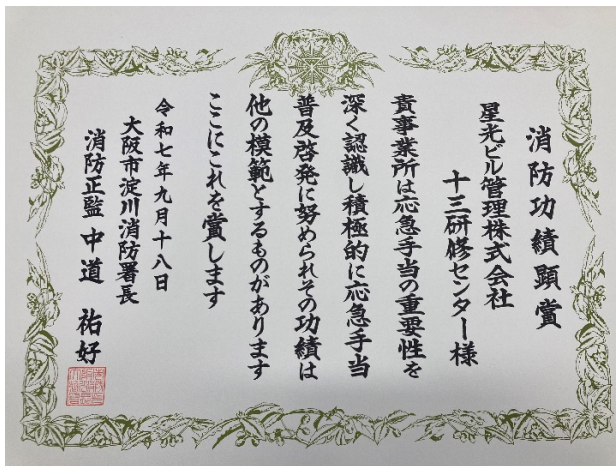 消防功績顕賞
星光ビル管理株式会社
十三研修センター様
貴事業所は応急手当の重要性を
深く認識し積極的に応急手当
普及啓発に努められその功績は
他の模範とするものがあります
ここにこれを賞します
令和七年九月十八日
大阪市淀川消防署長
消防正監 中道 祐好